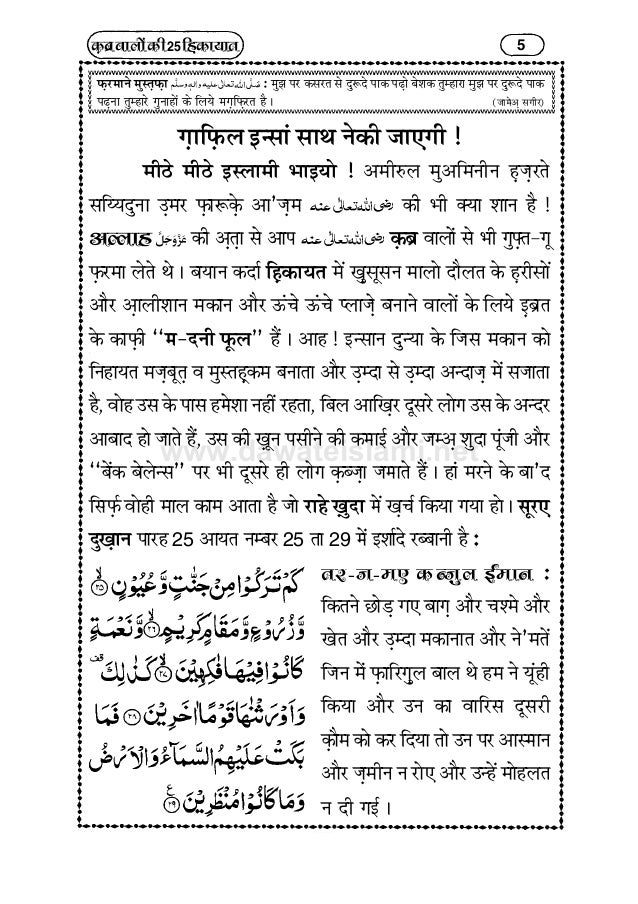 क़ब्र वालों की 25 हिकायात
5
फ़रमाने मुस्तफ़ा صَلَّى اللهُ تَعَالٰى عَلَيْهِ وَاٰلِهٖ وَسَلَّم : मुझ पर कसरत से दुरूदे पाक पढ़ो बेशक तुम्हारा मुझ पर दुरूदे पाक
पढ़ना तुम्हारे गुनाहों के लिये मग़फ़िरत है । (जामेअ़ सग़ीर)
ग़ाफ़िल इन्सां साथ नेकी जाएगी !
मीठे मीठे इस्लामी भाइयो ! अमीरुल मुअमिनीन ह़ज़रते
सय्यिदुना उ़मर फ़ारूक़े आ'ज़म رضى الله تعالٰى عنه की भी क्या शान है !
अल्लाह عَزَّوَجَلَّ की अ़त़ा से आप رضى الله تعالٰى عنه क़ब्र वालों से भी गुफ़्त-गू
फ़रमा लेते थे । बयान कर्दा ह़िकायत में ख़ुसूसन मालो दौलत के ह़रीसों
और आ़लीशान मकान और ऊंचे ऊंचे प्लाज़े बनाने वालों के लिये इ़ब्रत
के काफ़ी “म-दनी फूल” हैं । आह ! इन्सान दुन्या के जिस मकान को
निहायत मज़बूत़ व मुस्तह़कम बनाता और उ़म्दा से उ़म्दा अन्दाज़ में सजाता
है, वोह उस के पास हमेशा नहीं रहता, बिल आख़िर दूसरे लोग उस के अन्दर
आबाद हो जाते हैं, उस की ख़ून पसीने की कमाई और जम्अ़ शुदा पूंजी और
www.dawateislami.net
“बेंक बेलेन्स” पर भी दूसरे ही लोग क़ब्ज़ा जमाते हैं । हां मरने के बा'द
सिर्फ़ वोही माल काम आता है जो राहे ख़ुदा में ख़र्च किया गया हो । सूरए
दुख़ान पारह 25 आयत नम्बर 25 ता 29 में इर्शादे रब्बानी है :
كَمْ تَرَكُوْا مِنْ جَنّٰتٍ وَّعُيُوْنٍ ﴿٢٥﴾
وَّزُرُوْعٍ وَّمَقَامٍ كَرِيْمٍ ﴿٢٦﴾ وَّنَعْمَةٍ
كَانُوْا فِيْهَا فٰكِهِيْنَ ﴿٢٧﴾ كَذٰلِكَ ۫
وَاَوْرَثْنٰهَا قَوْمًا اٰخَرِيْنَ ﴿٢٨﴾ فَمَا
بَكَتْ عَلَيْهِمُ السَّمَآءُ وَالْاَرْضُ
وَمَا كَانُوْا مُنْظَرِيْنَ ﴿٢٩﴾
तर-ज-मए कन्ज़ुल ईमान :
कितने छोड़ गए बाग़ और चश्मे और
खेत और उ़म्दा मकानात और ने'मतें
जिन में फ़ारिग़ुल बाल थे हम ने यूंही
किया और उन का वारिस दूसरी
क़ौम को कर दिया तो उन पर आस्मान
और ज़मीन न रोए और उन्हें मोहलत
न दी गई ।